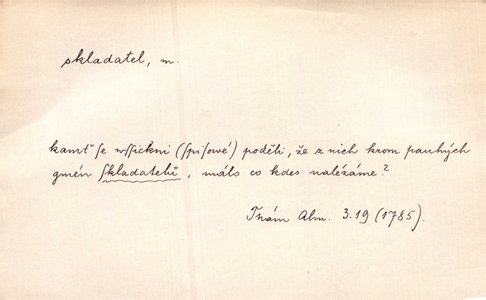 skladatel, m.
kamť ſe wſſickni (ſpiſowé) poděli, že z nich krom pauhých
gmén ſkladatelů, málo co kdes nalézáme?
Thám Alm. 3.19 (1785).